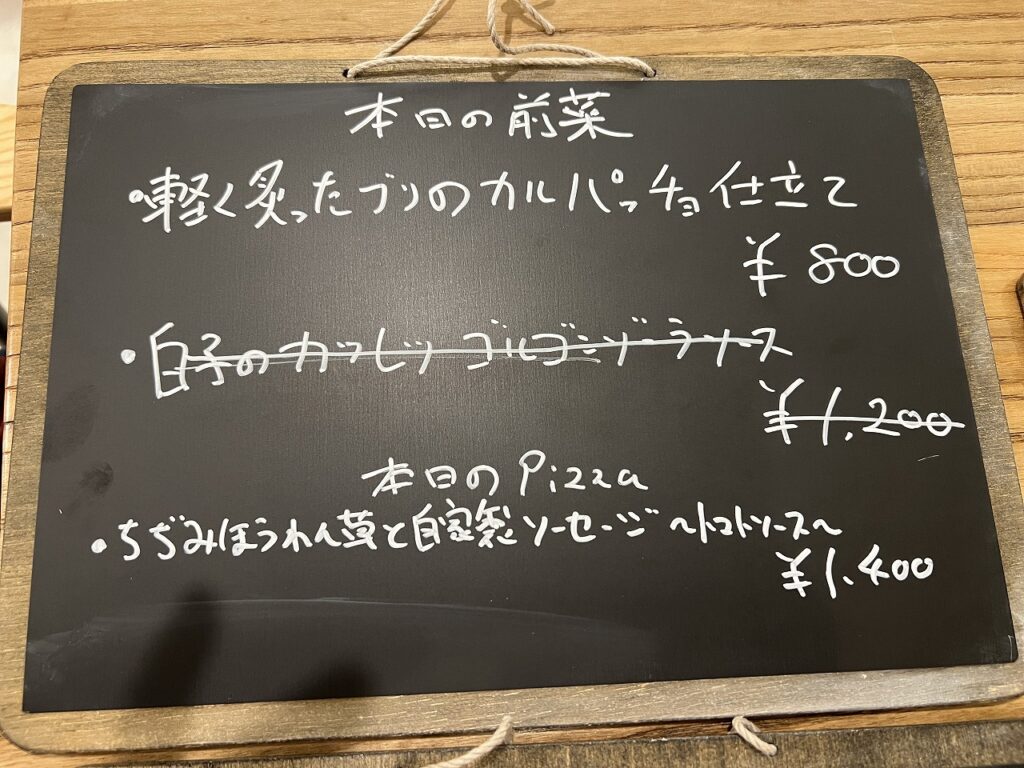 本日の前菜
・軽く炙ったブリのカルパッチョ仕立て
¥800
・白子のカツレツ ゴルゴンゾーラソース
¥1,200
本日のPizza
・ちぢみほうれん草と自家製ソーセージ 〜トマトソース〜
¥1,400